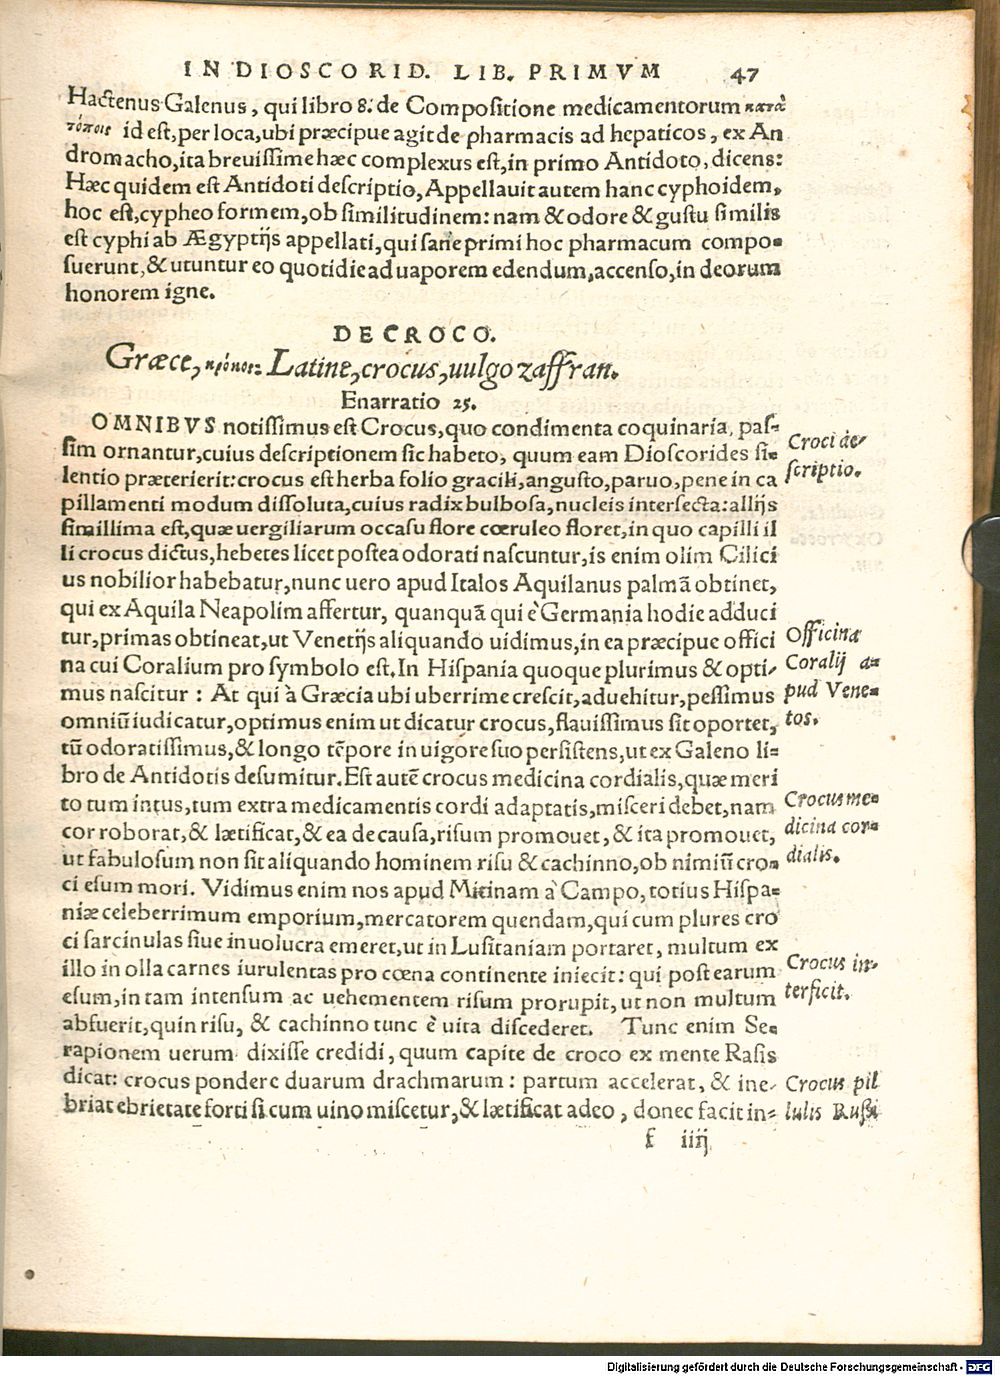 IN DIOSCORID. LIB. PRIMVM 47
Hactenus Galenus, qui libro 8. de Compositione medicamentorum κατὰ
τόπους id est, per loca, ubi præcipue agit de pharmacis ad hepaticos, ex An
dromacho, ita breuissime hæc complexus est, in primo Antidoto, dicens:
Hæc quidem est Antidoti descriptio, Appellauit autem hanc cyphoidem,
hoc est, cypheo formem, ob similitudinem: nam & odore & gustu similis
est cyphi ab Ægyptijs appellati, qui sane primi hoc pharmacum compo-
suerunt, & utuntur eo quotidie ad uaporem edendum, accenso, in deorum
honorem igne.
DE CROCO.
Græce, κρόκος: Latine, crocus, uulgo zaffran.
Enarratio 25.
OMNIBVS notissimus est Crocus, quo condimenta coquinaria, pas-
sim ornantur, cuius descriptionem sic habeto, quum eam Dioscorides si-
lentio præterierit: crocus est herba folio gracili, angusto, paruo, pene in ca
pillamenti modum dissoluta, cuius radix bulbosa, nucleis intersecta: allijs
simillima est, quæ uergiliarum occasu flore cœruleo floret, in quo capilli il
li crocus dictus, hebetes licet postea odorati nascuntur, is enim olim Cilici
us nobilior habebatur, nunc uero apud Italos Aquilanus palmã obtinet,
qui ex Aquila Neapolim affertur, quanquã qui è Germania hodie adduci
tur, primas obtineat, ut Venetijs aliquando uidimus, in ea præcipue offici
na cui Coralium pro symbolo est. In Hispania quoque plurimus & opti-
mus nascitur: At qui à Græcia ubi uberrime crescit, aduehitur, pessimus
omniũ iudicatur, optimus enim ut dicatur crocus, flauissimus sit oportet,
tũ odoratissimus, & longo tẽpore in uigore suo persistens, ut ex Galeno li-
bro de Antidotis desumitur. Est autẽ crocus medicina cordialis, quæ meri
to tum intus, tum extra medicamentis cordi adaptatis, misceri debet, nam
cor roborat, & lætificat, & ea de causa, risum promouet, & ita promouet,
ut fabulosum non sit aliquando hominem risu & cachinno, ob nimiũ cro-
ci esum mori. Vidimus enim nos apud Mitinam à Campo, totius Hispa-
niæ celeberrimum emporium, mercatorem quendam, qui cum plures cro
ci sarcinulas siue inuolucra emeret, ut in Lusitaniam portaret, multum ex
illo in olla carnes iurulentas pro cœna continente iniecit: qui post earum
esum, in tam intensum ac uehementem risum prorupit, ut non multum
abfuerit, quin risu, & cachinno tunc è uita discederet. Tunc enim Se-
rapionem uerum dixisse credidi, quum capite de croco ex mente Rasis
dicat: crocus pondere duarum drachmarum: partum accelerat, & ine-
briat ebrietate forti si cum uino miscetur, & lætificat adeo, donec facit in-
f iiij
Croci de-
scriptio.
Officina
Coralij a-
pud Vene-
tos.
Crocus me-
dicina cor-
dialis.
Crocus in-
terficit.
Crocus pil
lulis Ruffi
Digitalisierung gefördert durch die Deutsche Forschungsgemeinschaft - DFG